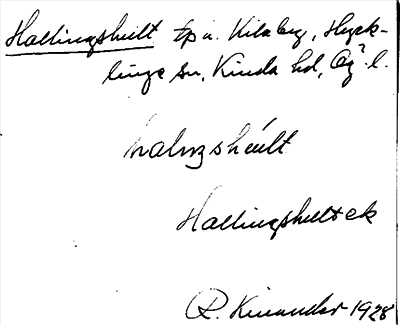 Hallingshult tp u. Kilaberg, Hyck-
linge sn, Kinda hd, Ög. l.
halıŋshúlt
Hallingshultek
R. Kinander 1928